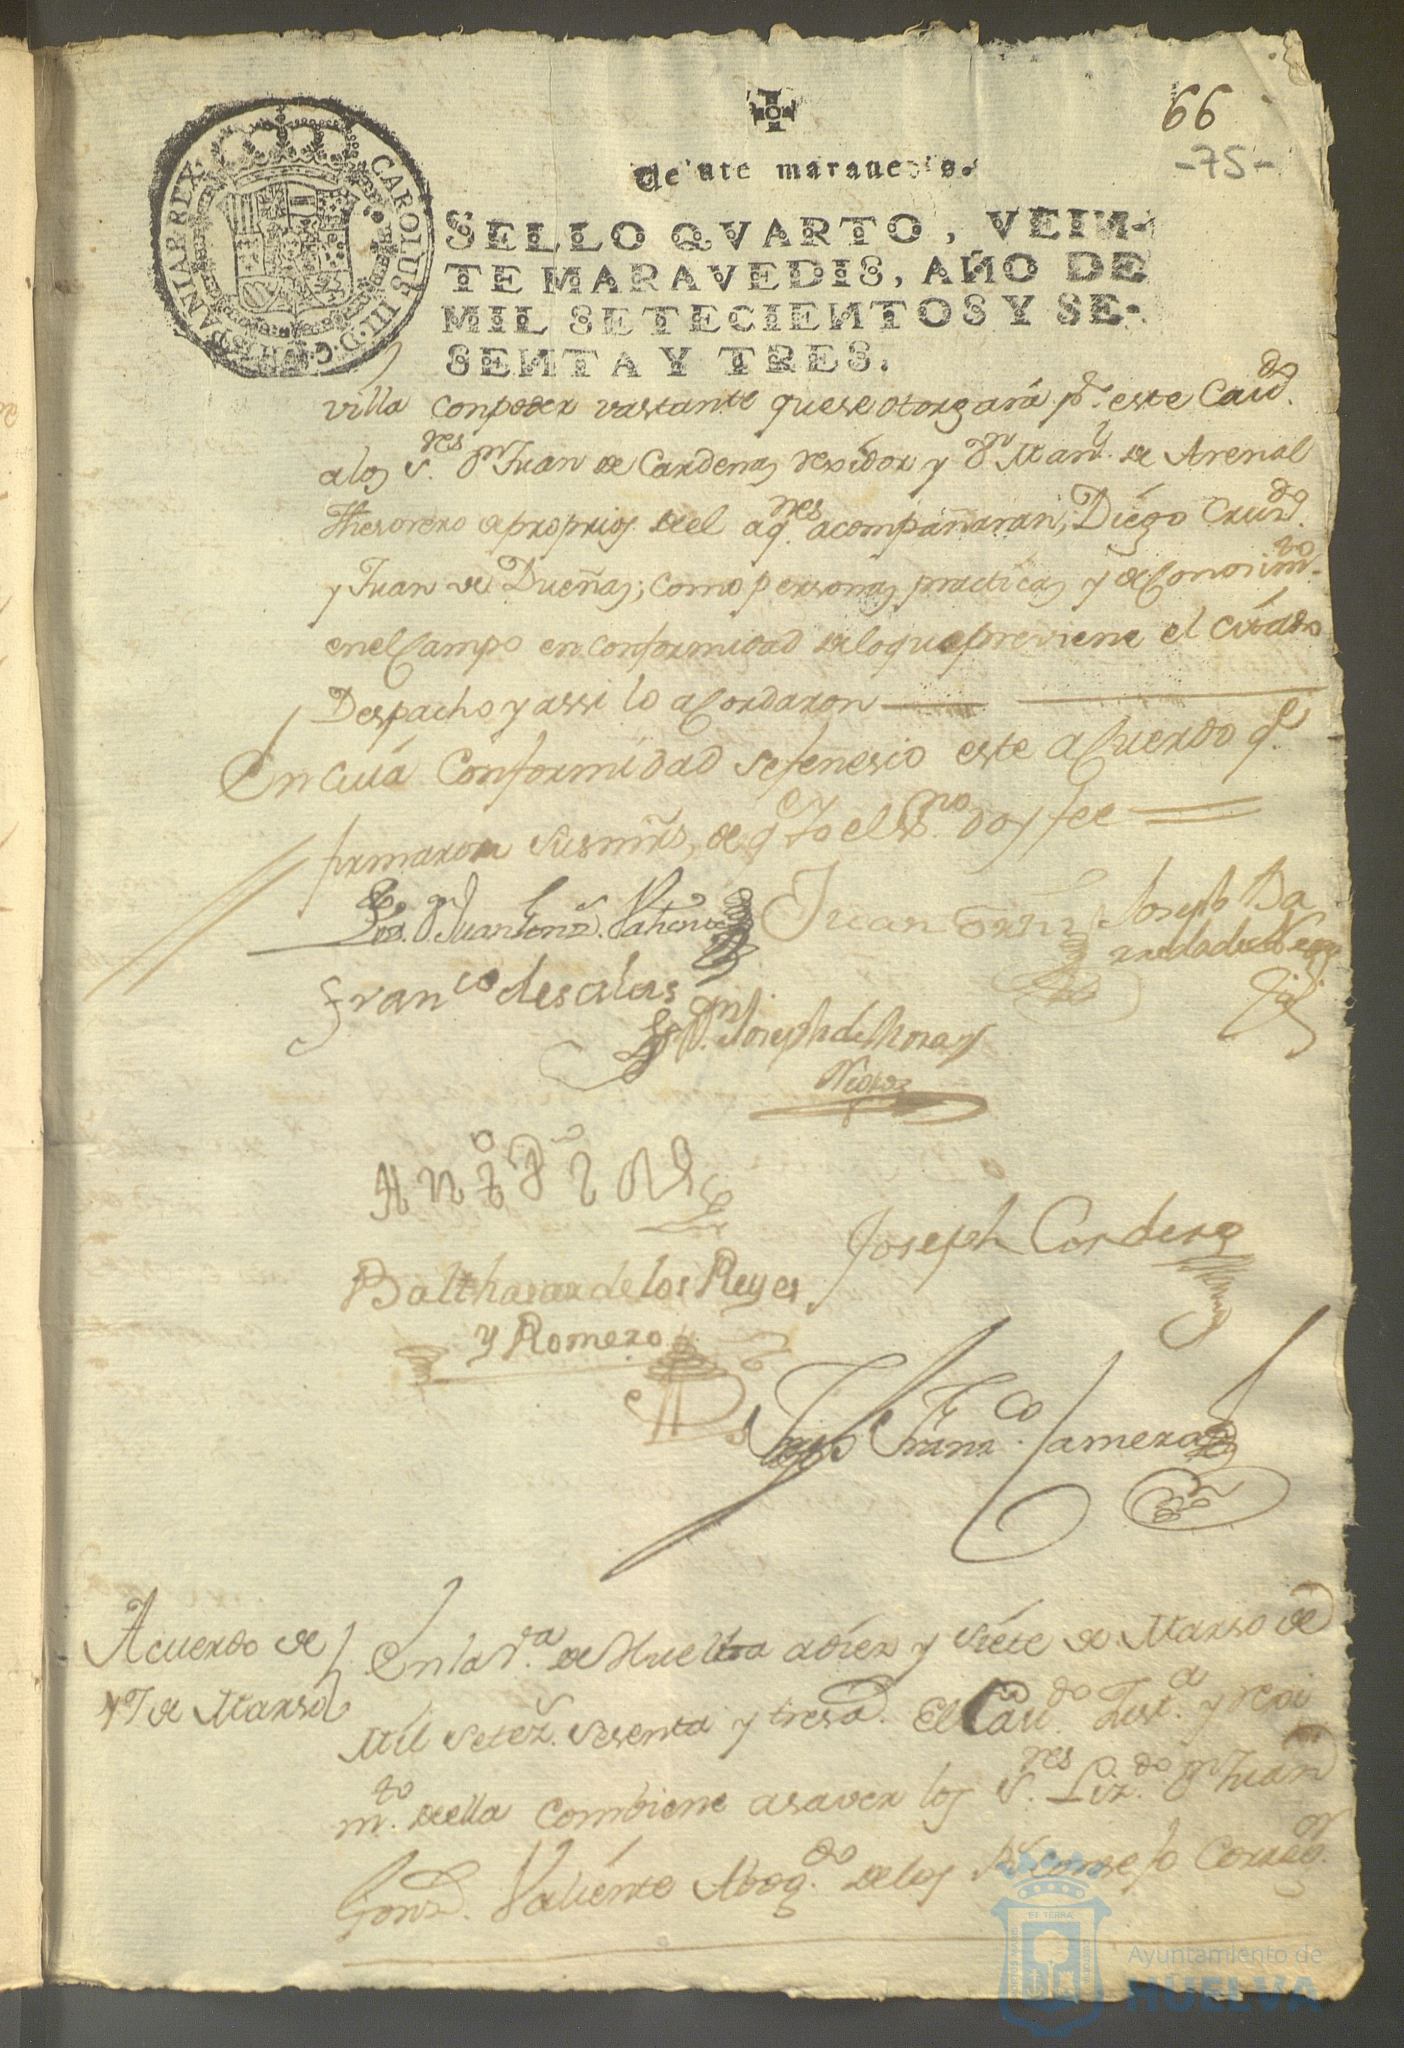 66
-75-
Veinte maravedis.
CAROLUS III D.G. HISPANIAR REX
SELLO QVARTO, VEIN-
TE MARAVEDIS, AÑO DE
MIL SETECIENTOS Y SE-
SENTA Y TRES.
villa conpoder vastante quese otorgará pr. este Cavdo.
a los Sres. Dn Juan de Cardenas rexidor y Dn Manl. de Arenal
Thesorero de proprios del aqnes acompañaran, Diego
y Juan de Dueñas; como personas practicas y de Conosimto.
en el Campo en conformidad de loque previene el citado
Despacho y assi lo acordaron
En cuia Conformidad sefenesio este acuerdo qe.
firmaron sus mrs, de qe Yo el Essno. doy fee
Lizdo. Dn Juan Gonz. Valiente
Juan
Joseph Ba
Franco de salas
Dn. Joseph de Mora y
Negro
Balthasar de los Reyes
y Romero
Joseph Cordero
Franco. Jamera
Acuerdo de
17 de Marso
En la Va. de Huelva a diez y siete de Marso de
Mil Setez. Sesenta y tres a. El Cavdo. Justa. y rexi
mto. della combiene a saver los Sres. Lizdo. Dn Juan
Gonz. Valiente Abogdo. de los Rs. Consejos Corregor.
ET TERRA
Ayuntamiento de
HUELVA